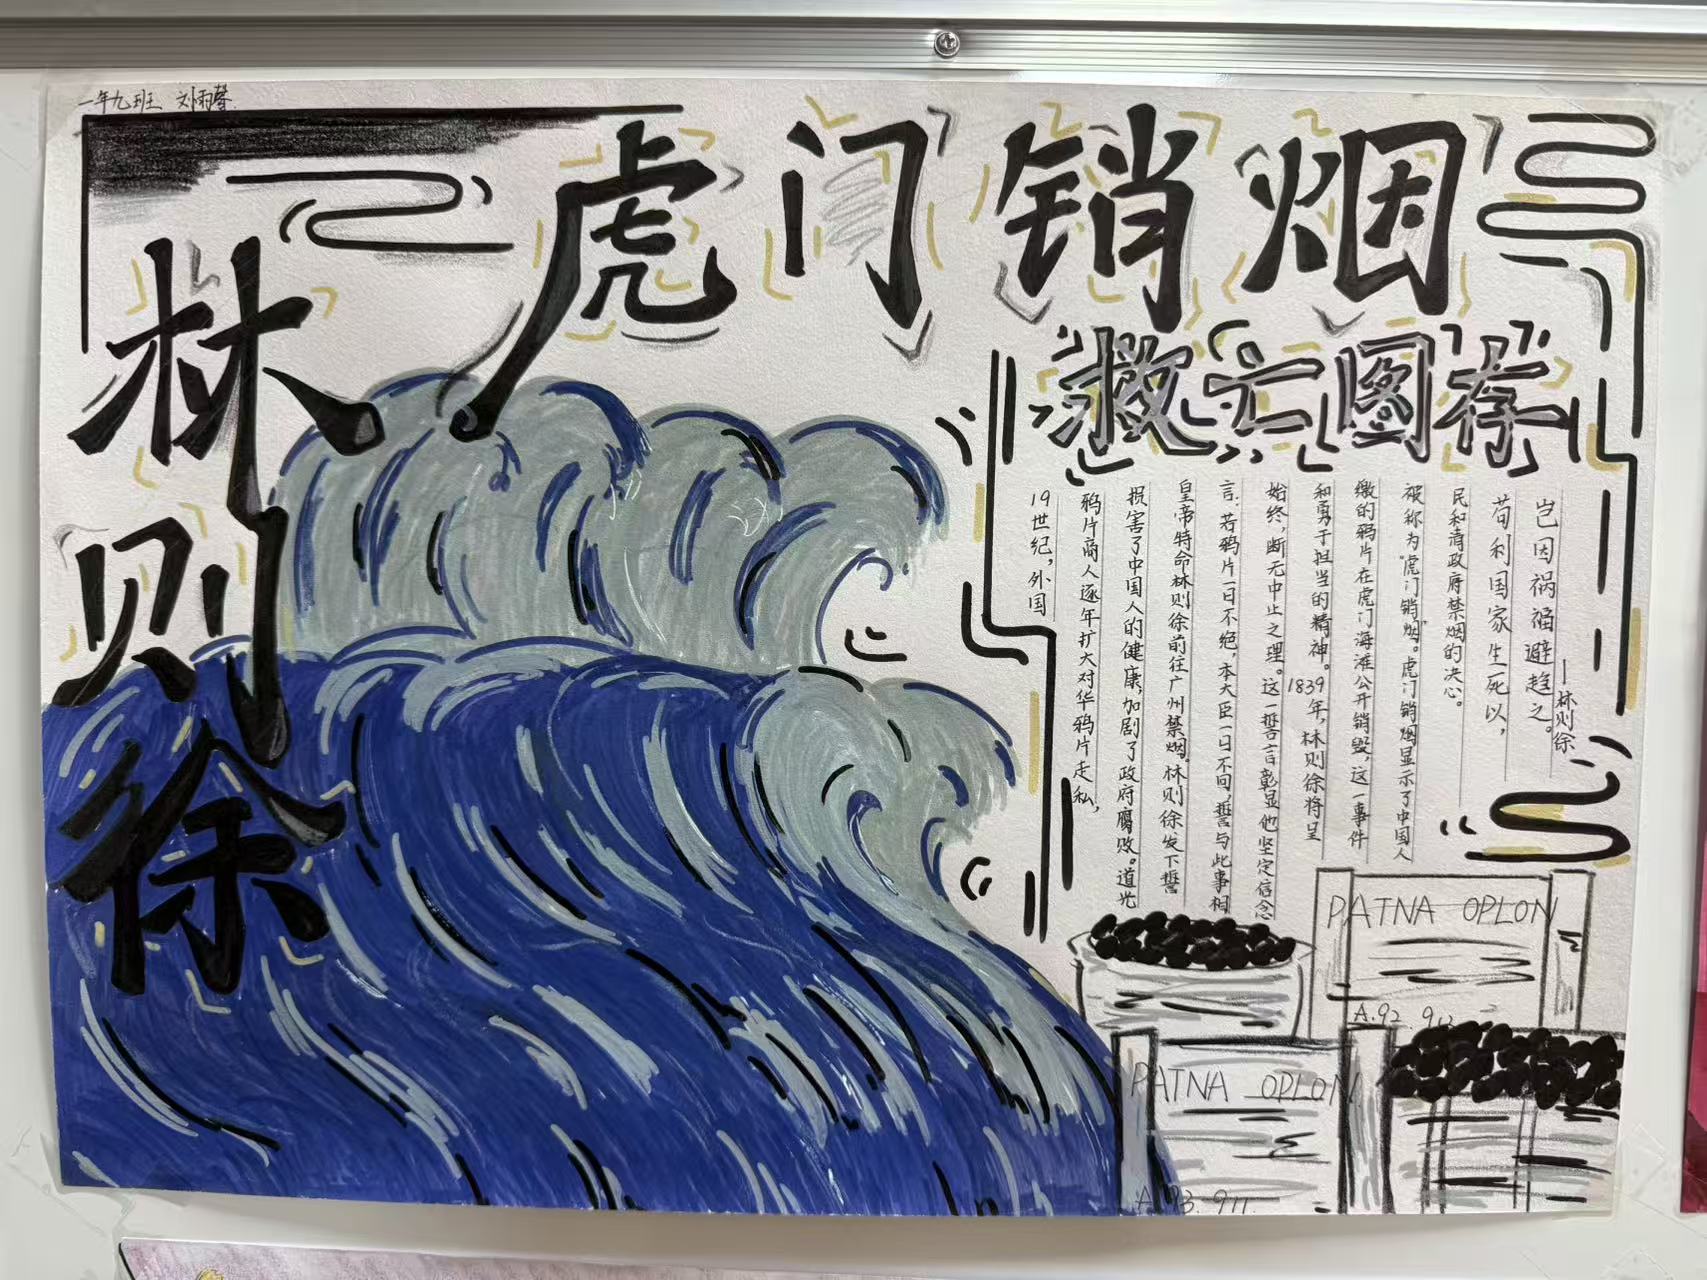 一年九班 刘雨馨
虎门销烟
林则徐
救亡图存
19世纪，外国
鸦片商人逐年扩大对华鸦片走私，
损害了中国人的健康，加剧了政府腐败。道光
皇帝特命林则徐前往广州禁烟。林则徐发下誓
言：若鸦片一日不绝，本大臣一日不回，誓与此事相
始终，断无中止之理。这一誓言彰显他坚定信念
和勇于担当的精神。1839年，林则徐将呈
缴的鸦片在虎门海滩公开销毁，这一事件
被称为“虎门销烟”。虎门销烟显示了中国人
民和清政府禁烟的决心。
苟利国家生死以，
岂因祸福避趋之。
——林则徐
PATNA OPLON
A.92.912
PATNA OPLON
A.93.911.